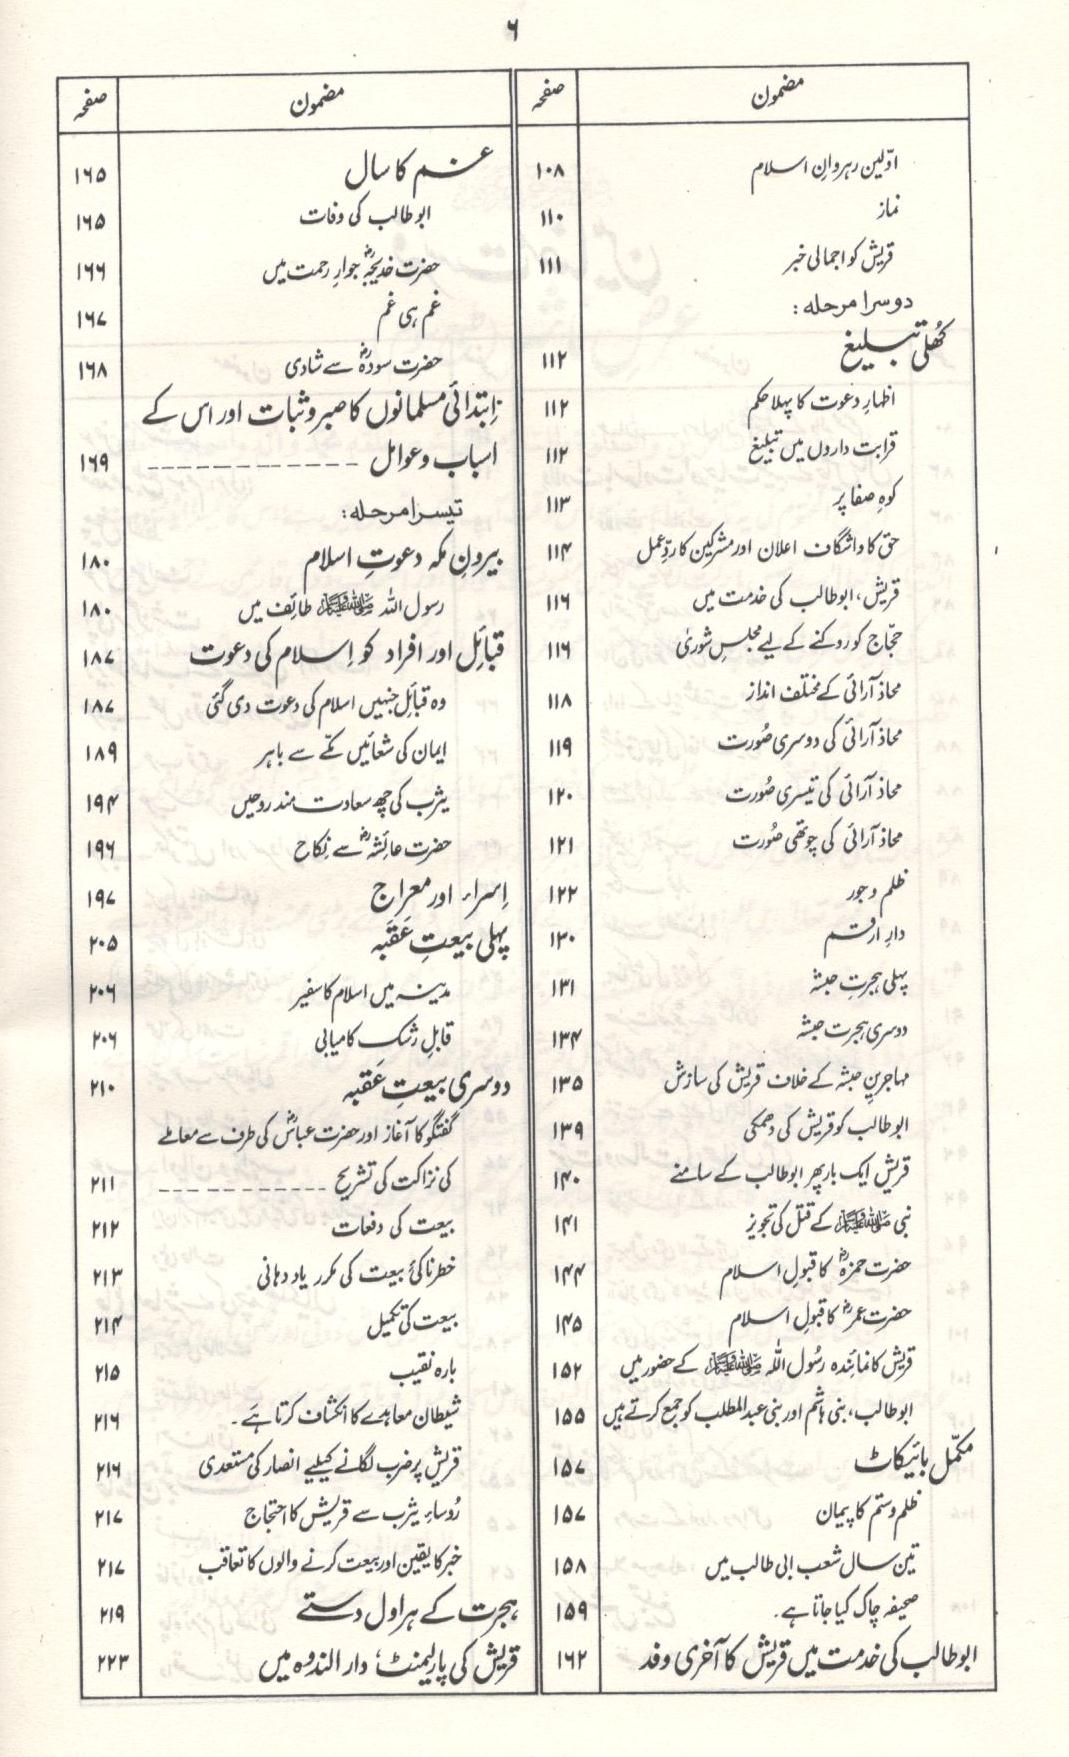 ۶
مضمون صفحہ
اوّلین رہروانِ اسلام ۱۰۸
نماز ۱۱۰
قریش کو اجمالی خبر ۱۱۱
دوسرا مرحلہ:
کھُلی تبلیغ ۱۱۲
اظہارِ دعوت کا پہلا حکم ۱۱۲
قرابت داروں میں تبلیغ ۱۱۲
کوہِ صفا پر ۱۱۳
حق کا واشگاف اعلان اور مشرکین کا ردِّ عمل ۱۱۴
قریش، ابوطالب کی خدمت میں ۱۱۶
حجّاج کو روکنے کے لیے مجلسِ شوریٰ ۱۱۶
محاذ آرائی کے مختلف انداز ۱۱۸
محاذ آرائی کی دوسری صُورت ۱۱۹
محاذ آرائی کی تیسری صُورت ۱۲۰
محاذ آرائی کی چوتھی صُورت ۱۲۱
ظلم و جور ۱۲۲
دارِ ارقم ۱۳۰
پہلی ہجرتِ حبشہ ۱۳۱
دوسری ہجرت حبشہ ۱۳۴
مہاجرینِ حبشہ کے خلاف قریش کی سازش ۱۳۵
ابوطالب کو قریش کی دھمکی ۱۳۹
قریش ایک بار پھر ابوطالب کے سامنے ۱۴۰
نبی ﷺ کے قتل کی تجویز ۱۴۱
حضرت حمزہؓ کا قبولِ اسلام ۱۴۴
حضرت عمرؓ کا قبولِ اسلام ۱۴۵
قریش کا نمائندہ رسُول اللّٰہ ﷺ کے حضور میں ۱۵۲
ابوطالب، بنی ہاشم اور بنی عبدالمطلب کو جمع کرتے ہیں ۱۵۵
مکمّل بائیکاٹ ۱۵۷
ظلم و ستم کا پیمان ۱۵۷
تین سال شعب ابی طالب میں ۱۵۸
صحیفہ چاک کیا جاتا ہے۔ ۱۵۹
ابوطالب کی خدمت میں قریش کا آخری وفد ۱۶۲
مضمون صفحہ
غم کا سال ۱۶۵
ابوطالب کی وفات ۱۶۵
حضرت خدیجہؓ جوارِ رحمت میں ۱۶۶
غم ہی غم ۱۶۷
حضرت سودہؓ سے شادی ۱۶۸
اِبتدائی مسلمانوں کا صبر و ثبات اور اس کے
اسباب و عوامل ------------- ۱۶۹
تیسرا مرحلہ:
بیرونِ مکہ دعوتِ اسلام ۱۸۰
رسول اللہ ﷺ طائف میں ۱۸۰
قبائل اور افراد کو اِسلام کی دعوت ۱۸۷
وہ قبائل جنہیں اسلام کی دعوت دی گئی ۱۸۷
ایمان کی شعائیں مکّے سے باہر ۱۸۹
یثرب کی چھ سعادت مند روحیں ۱۹۴
حضرت عائشہؓ سے نِکاح ۱۹۶
اِسراء اور معراج ۱۹۷
پہلی بیعتِ عَقَبہ ۲۰۵
مدینہ میں اسلام کا سفیر ۲۰۶
قابلِ رشک کامیابی ۲۰۶
دوسری بیعتِ عَقبہ ۲۱۰
گفتگو کا آغاز اور حضرت عباسؓ کی طرف سے معاملے
کی نزاکت کی تشریح ------------- ۲۱۱
بیعت کی دفعات ۲۱۲
خطرناکئ بیعت کی مکرر یاد دہانی ۲۱۳
بیعت کی تکمیل ۲۱۴
بارہ نقیب ۲۱۵
شیطان معاہدے کا انکشاف کرتا ہَے۔ ۲۱۶
قریش پر ضرب لگانے کیلیے انصار کی مستعدی ۲۱۶
رُوساءِ یثرب سے قریش کا احتجاج ۲۱۷
خبر کا یقین اور بیعت کرنے والوں کا تعاقب ۲۱۷
ہجرت کے ہراول دستے ۲۱۹
قریش کی پارلیمنٹ، دار الندوہ میں ۲۲۳